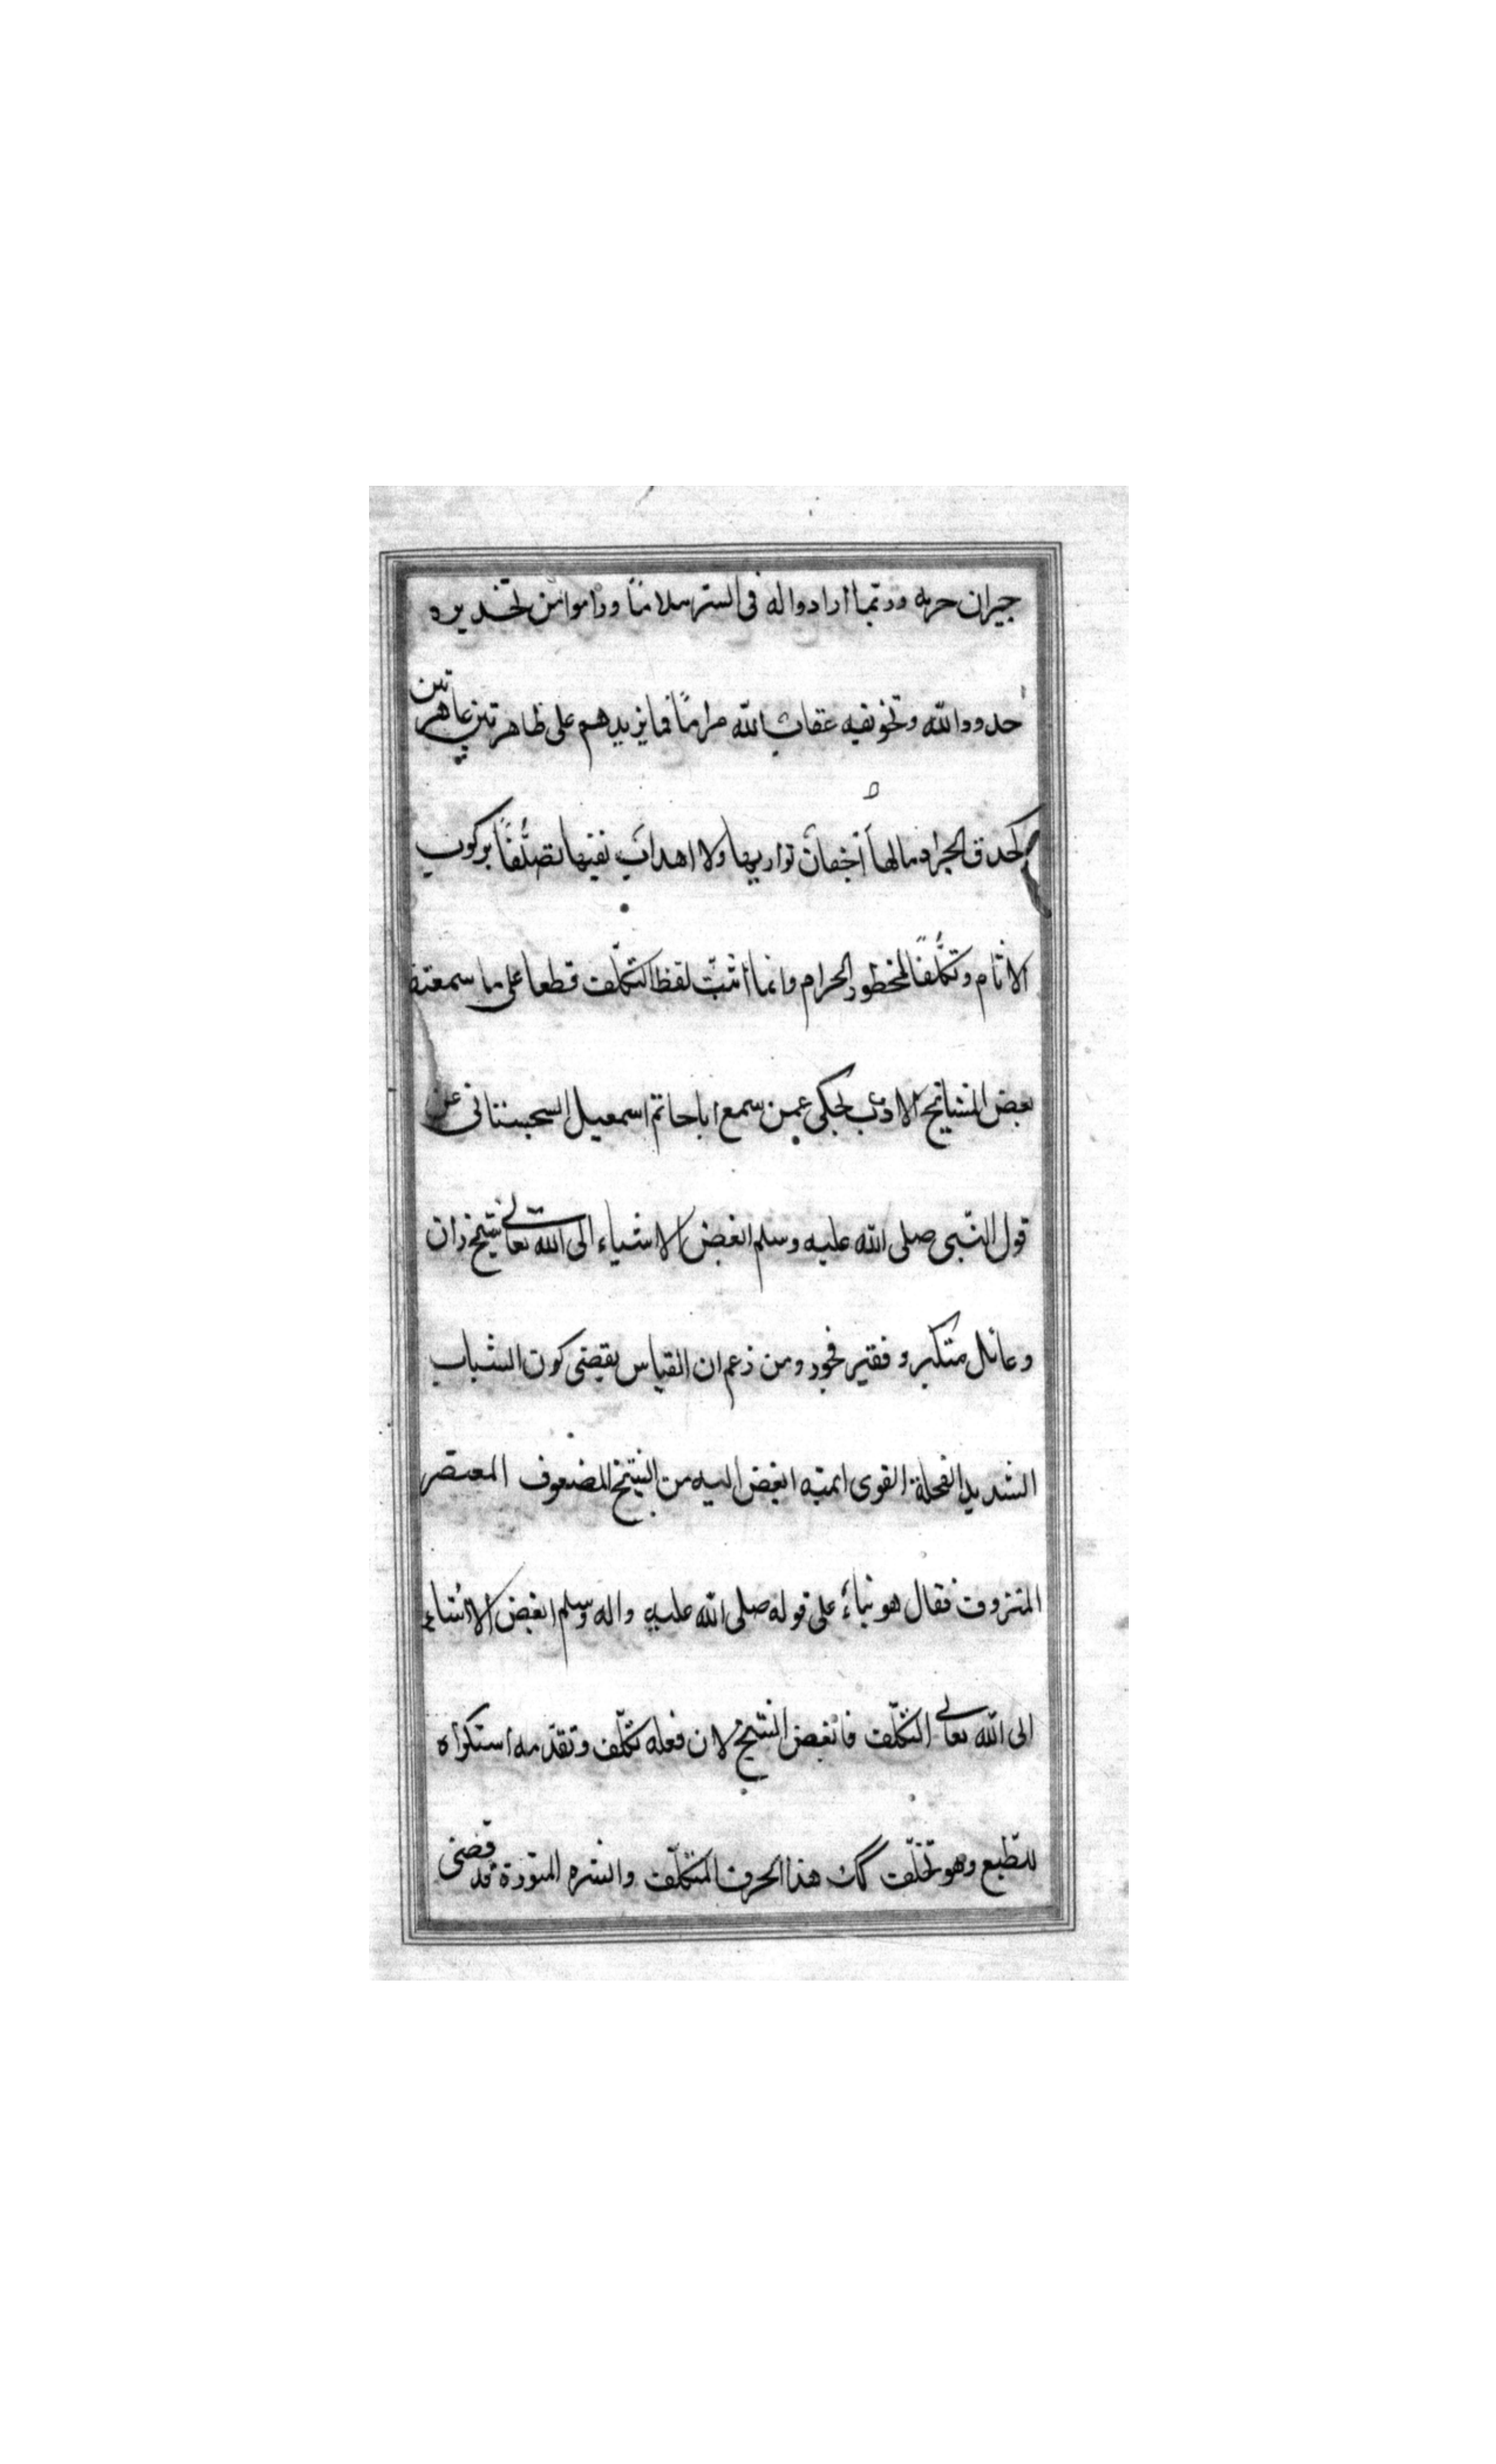 جيران حربه وربما ارادوا له فى الستر ملاما وراموا من تحذيره
حدود الله وتخويفه عقاب الله مراما فما يزيدهم على ظاهرتين عاهرتين
كحدق الجراد مالها أجفان تواريها ولا اهداب تقيها تصلفا بركوب
الاثام وتكلفا لمحظور الحرام وانما أثبت لفظ التكلف قطعا على ما سمعته
بعض المشايخ الادب يحكى عمن سمع ابا حاتم اسمعيل السجستانى عن
قول النبى صلى الله عليه وسلم ابغض الاشياء الى الله تعالى شيخ زان
وعائل متكبر و فقير فخور ومن زعم ان القياس يقضى كون الشباب
الشديد الفحلة القوى ابغض اليه من الشيخ المضعوف المعتصر
المنزوف فقال هو بناء على قوله صلى الله عليه واله وسلم ابغض الاشياء
الى الله تعالى التكلف فابغض الشيخ لان فعله تكلف وتقدمه استكراه
للطبع وهو تخلف هذا الحرف المتكلف والشره قد قضى